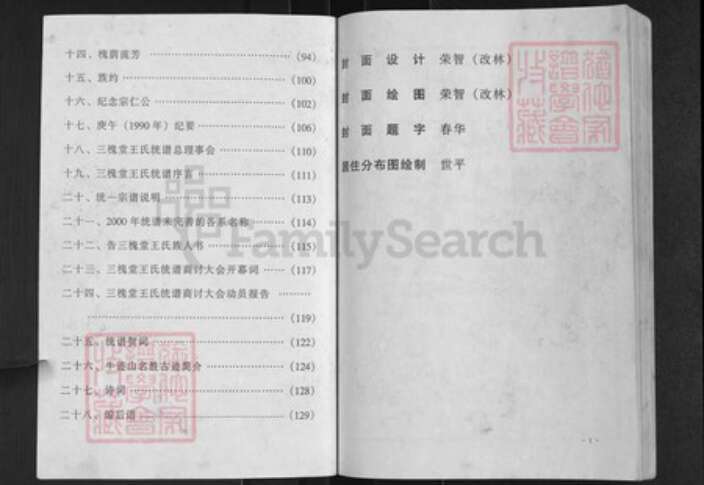 十四、槐荫流芳 ……………… (94)
十五、族约 ……………… (100)
十六、纪念宗仁公 ……………… (102)
十七、庚午(1990年)纪要 ……………… (106)
十八、三槐堂王氏统谱总理事会 ……………… (110)
十九、三槐堂王氏统谱序言 ……………… (111)
二十、统一宗谱说明 ……………… (113)
二十一、2000年统谱未完善的各系名称 ……… (114)
二十二、告三槐堂王氏族人书 ……………… (115)
二十三、三槐堂王氏统谱商讨大会开幕词 …… (117)
二十四、三槐堂王氏统谱商讨大会动员报告 ………
……………… (119)
二十五、统谱贺词 ……………… (122)
二十六、牛迹山名胜古迹简介 ……………… (124)
二十七、诗词 ……………… (128)
二十八、编后语 ……………… (129)
封面设计 荣智(改林)
封面绘图 荣智(改林)
封面题字 春华
居住分布图绘制 世平
·1·
FamilySearch